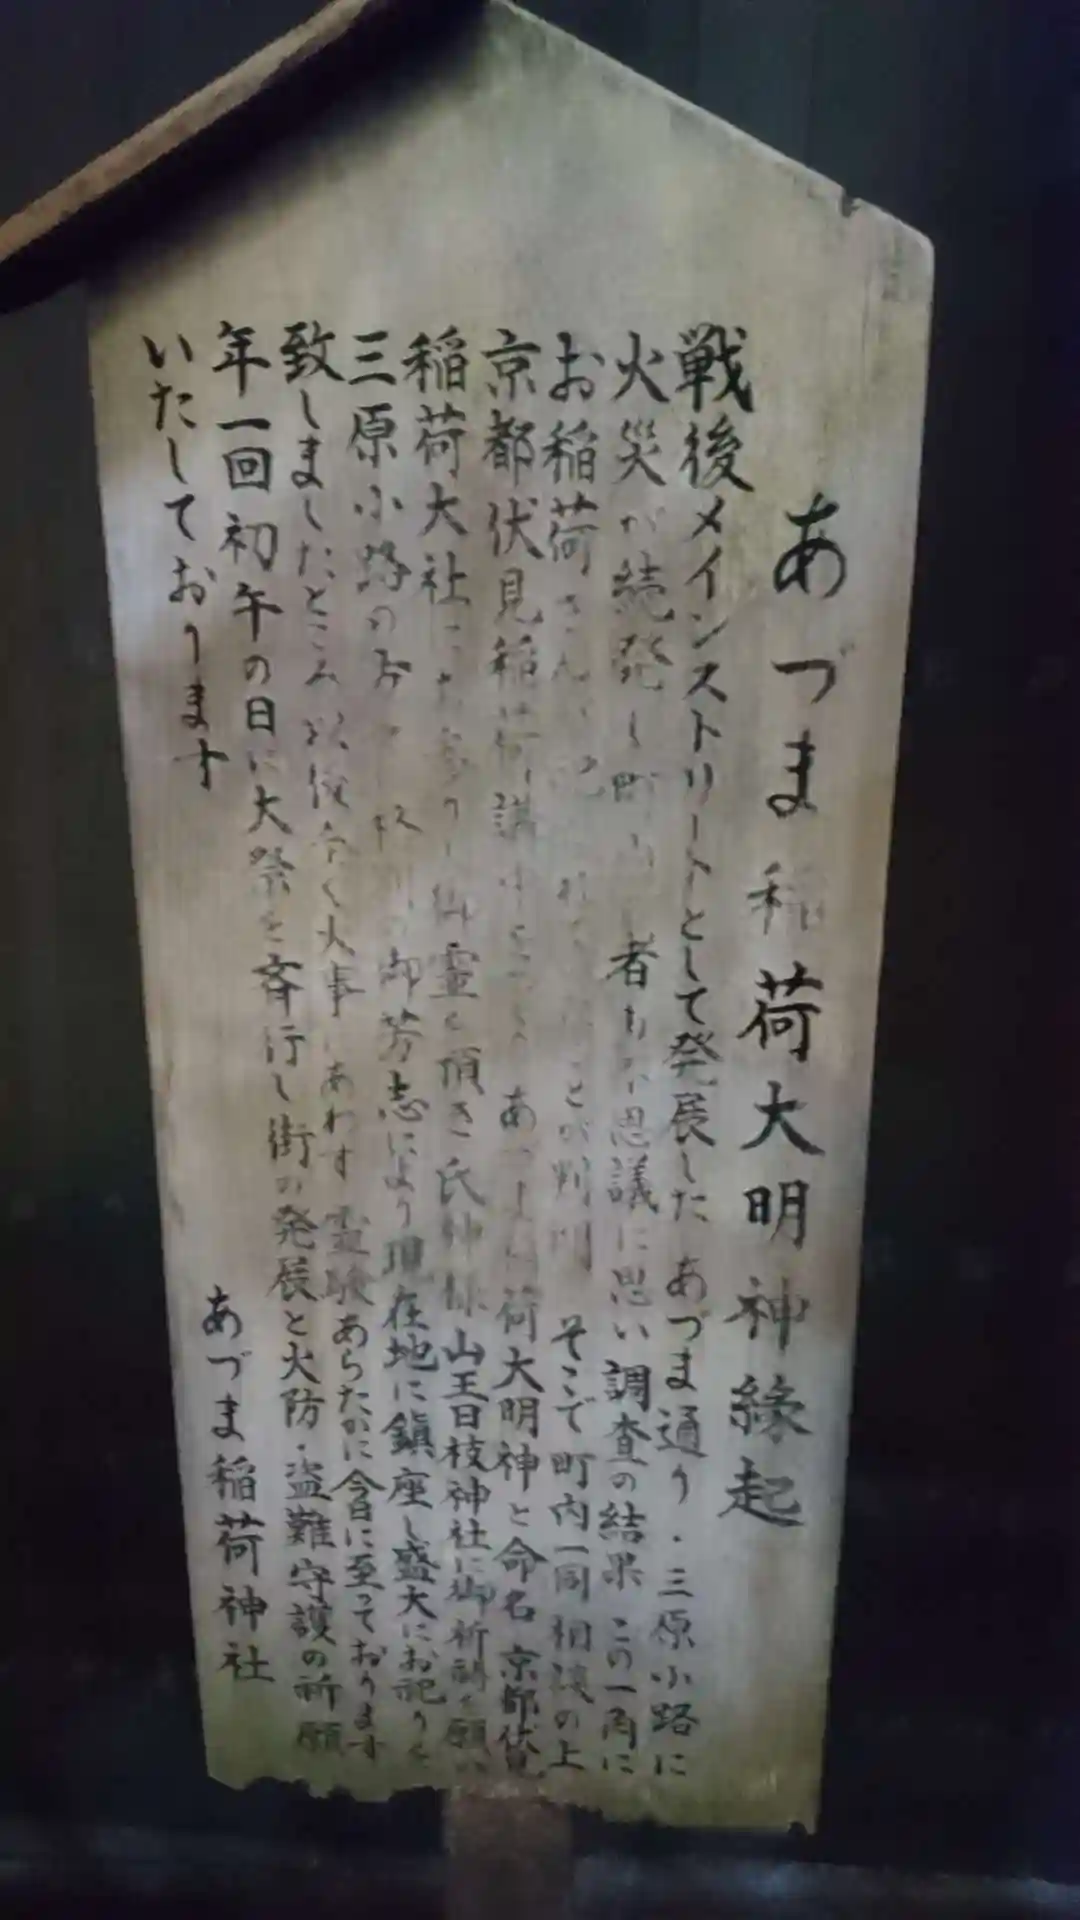 あづま稲荷大明神縁起
戦後メインストリートとして発展したあづま通り・三原小路に
火災が続発し町 者も不思議に思い調査の結果この一角に
お稲荷さんが祀 れて ことが判 そこで町内一同相談の上
京都伏見稲荷講 あづま稲荷大明神と命名京都伏見
稲荷大社に お参り 御霊を頂き氏神様山王日枝神社に御祈祷を願い
三原小路の 御芳志により現在地に鎮座し盛大にお祀りを
致しましたところ以後全く火事にあわず霊験あらたかに今日に至っております
年一回初午の日に大祭を斉行し街の発展と火防・盗難守護の祈願
いたしております
あづま稲荷神社